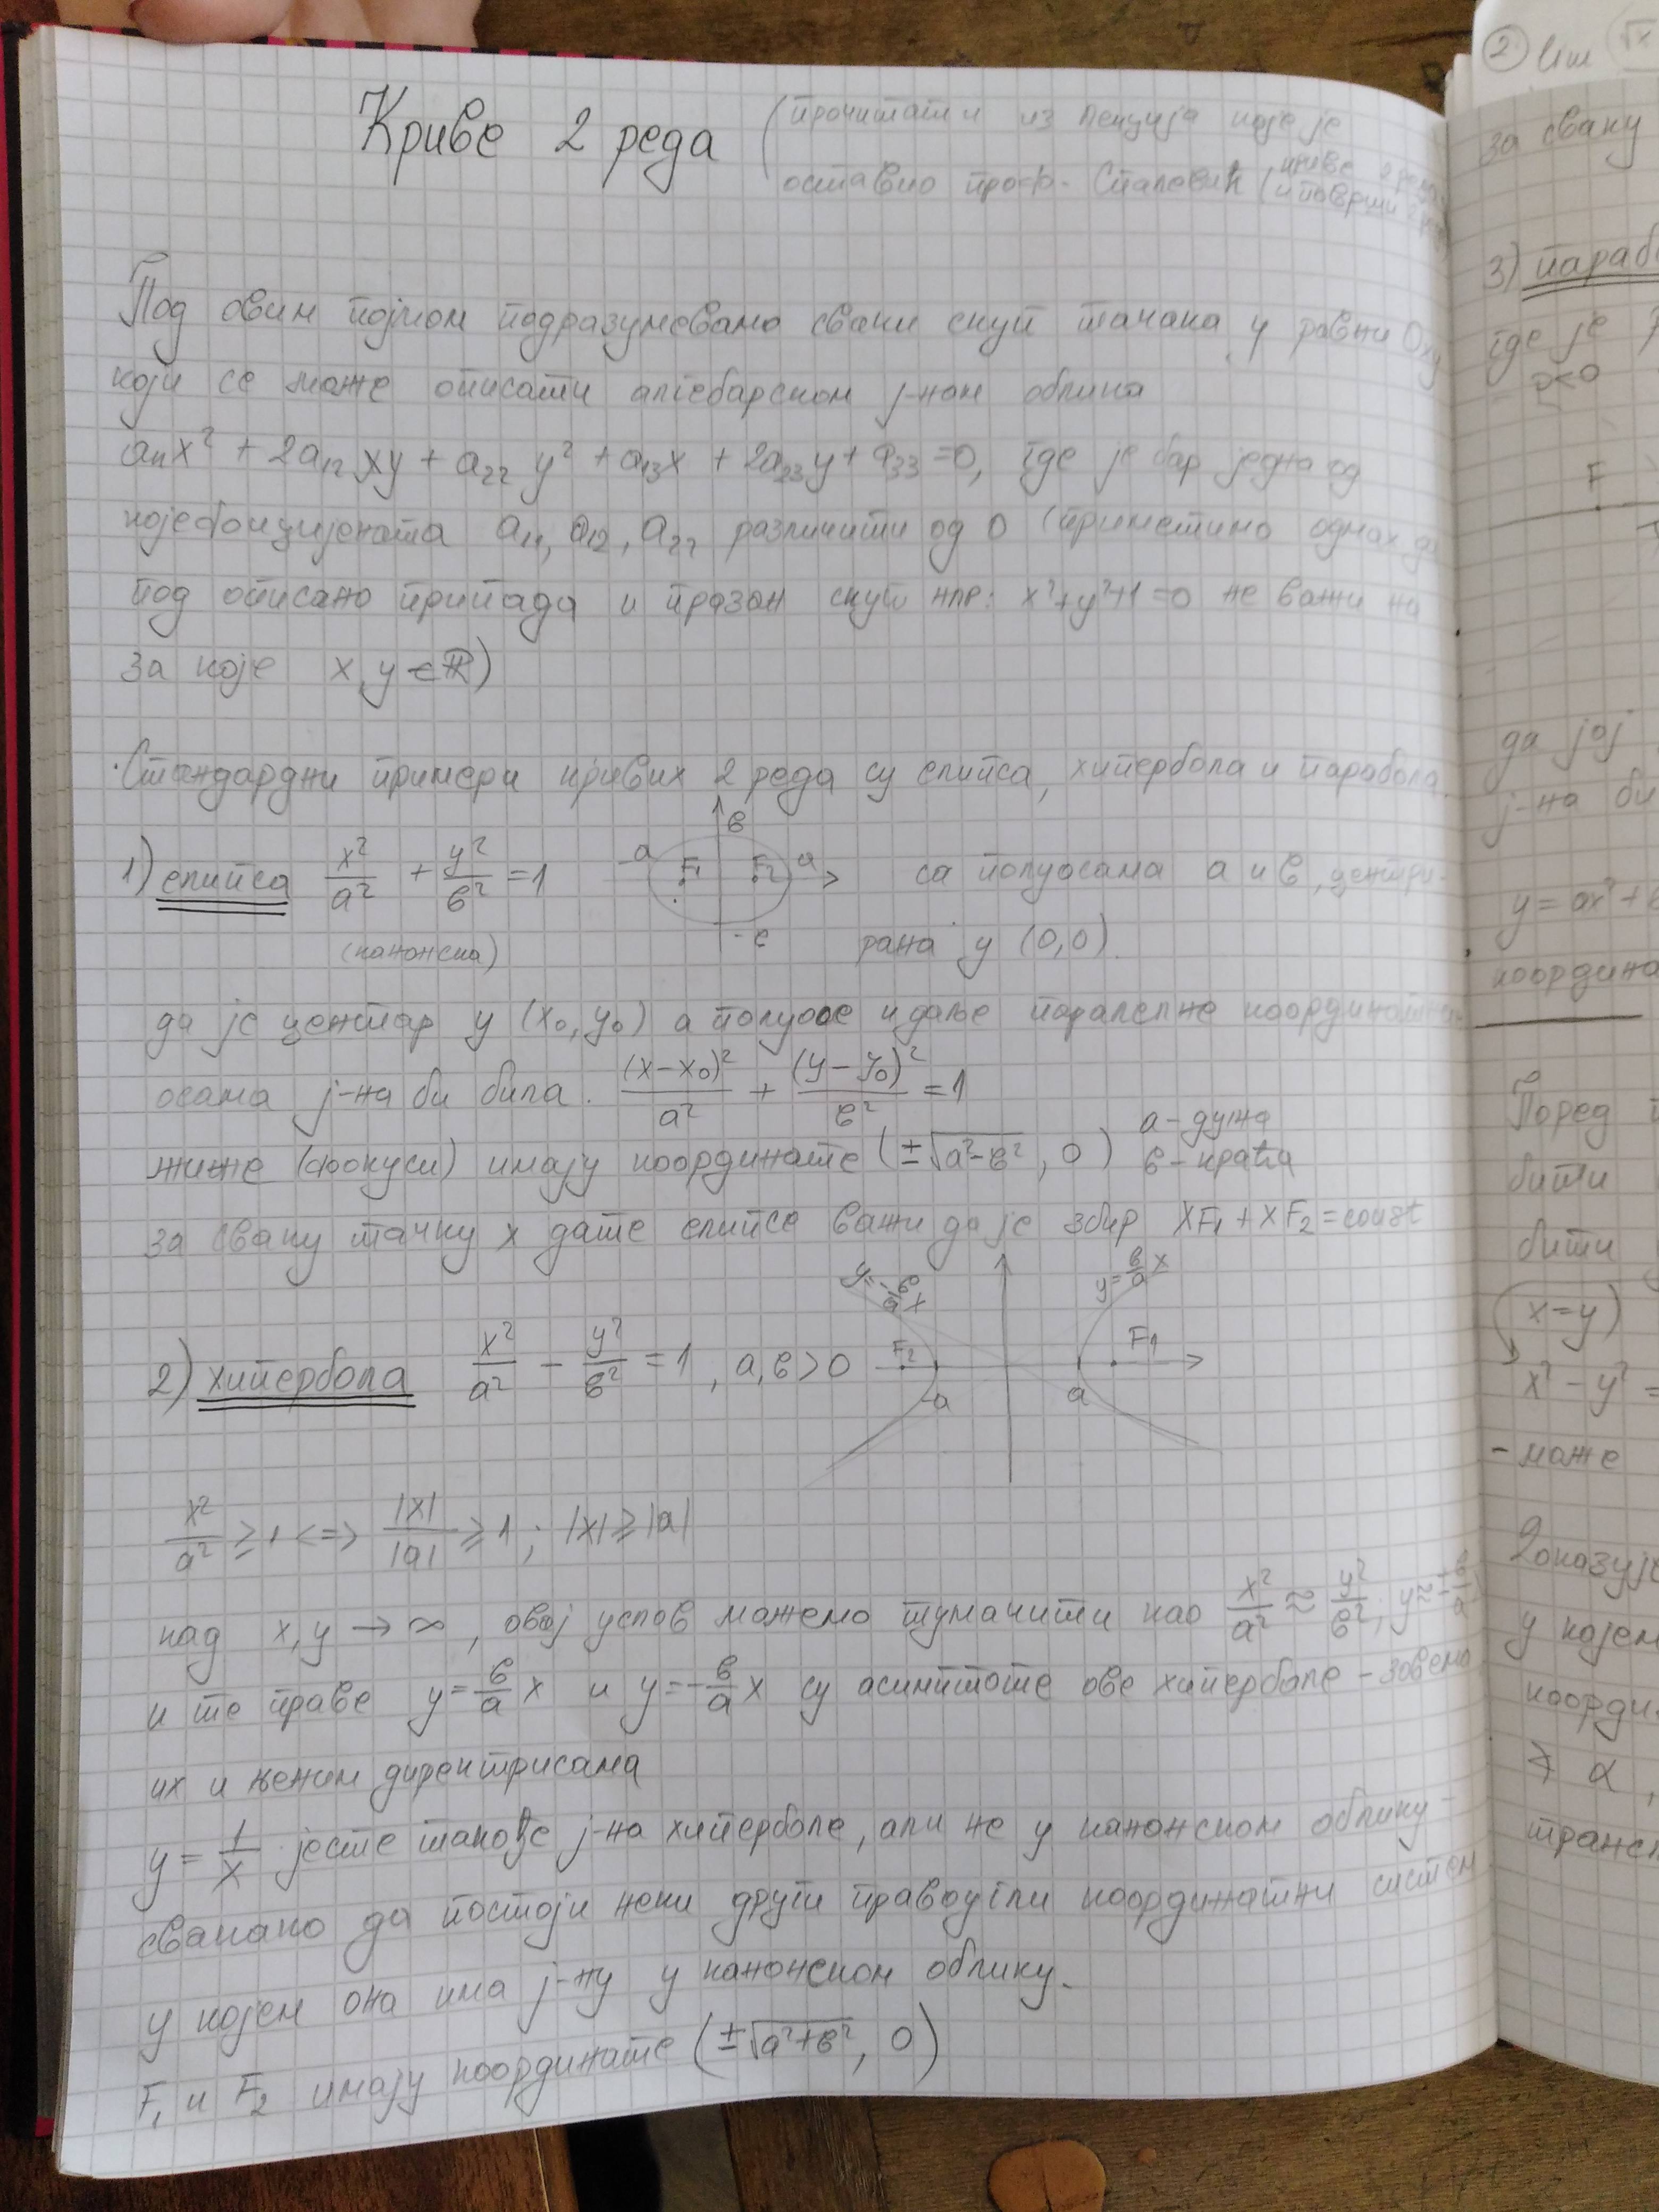 Криве 2 реда (прочитати из лекција које је
оставио проф. Спалевић (криве 2 реда
и површи 2 реда)
Под овим појмом подразумевамо сваки скуп тачака у равни Oxy
који се може описати алгебарском ј-ном облика
a₁₁x² + 2a₁₂xy + a₂₂y² + a₁₃x + 2a₂₃y + a₃₃ = 0, где је бар једна од
коефицијената a₁₁, a₁₂, a₂₂ различити од 0 (приметимо одмах да
под описано припада и празан скуп нпр: x²+y²+1=0 не важи ни
за које x,y ∈ ℝ)
·Стандардни примери кривих 2 реда су елипса, хипербола и парабола.
1) елипса x²/a² + y²/в² = 1 -a F₁ F₂ a в -в са полуосама a и в, центри-
(канонска) рана у (0,0).
да је центар у (x₀, y₀) а полуосе и даље паралелне координатним
осама ј-на би била. (x-x₀)²/a² + (y-y₀)²/в² = 1
жиже (фокуси) имају координате (±√(a²-в²), 0) a - дужа
в - краћа
за сваку тачку x дате елипсе важи да је збир XF₁ + XF₂ = const
2) хипербола x²/a² - y²/в² = 1, a,в > 0 y=-в/a x y=в/a x F₂ F₁ -a a
x²/a² ≥ 1 <=> |x|/|a| ≥ 1 ; |x| ≥ |a|
кад x,y → ∞, овај услов можемо тумачити као x²/a² ≈ y²/в²; y ≈ ±в/a
и те праве y = в/a x и y = -в/a x су асимптоте ове хиперболе - зовемо
их и њеним директрисама
y = 1/x јесте такође ј-на хиперболе, али не у канонском облику -
свакако да постоји неки други правоугли координатни систем
у којем она има ј-ну у канонском облику.
F₁ и F₂ имају координате (±√(a²+в²), 0)
② lim √x
за сваку
3) параб
где је
p<0
F
да јој
ј-на би
y = ax² + в
координа
Поред
бити
бити
(x=y)
x² - y² =
- може
Доказује
у којем
коорди
α,
трансл